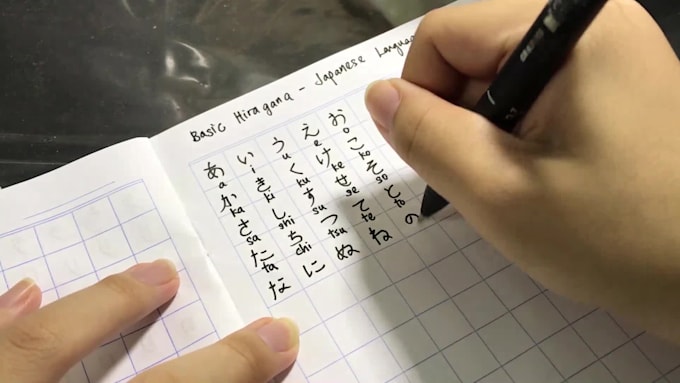 Basic Hiragana - Japanese Langua
あ い う え お
a i u e o
か き く け こ
ka ki ku ke ko
さ し す せ そ
sa shi su se so
た ち つ て と
ta chi tsu te to
な に ぬ ね の